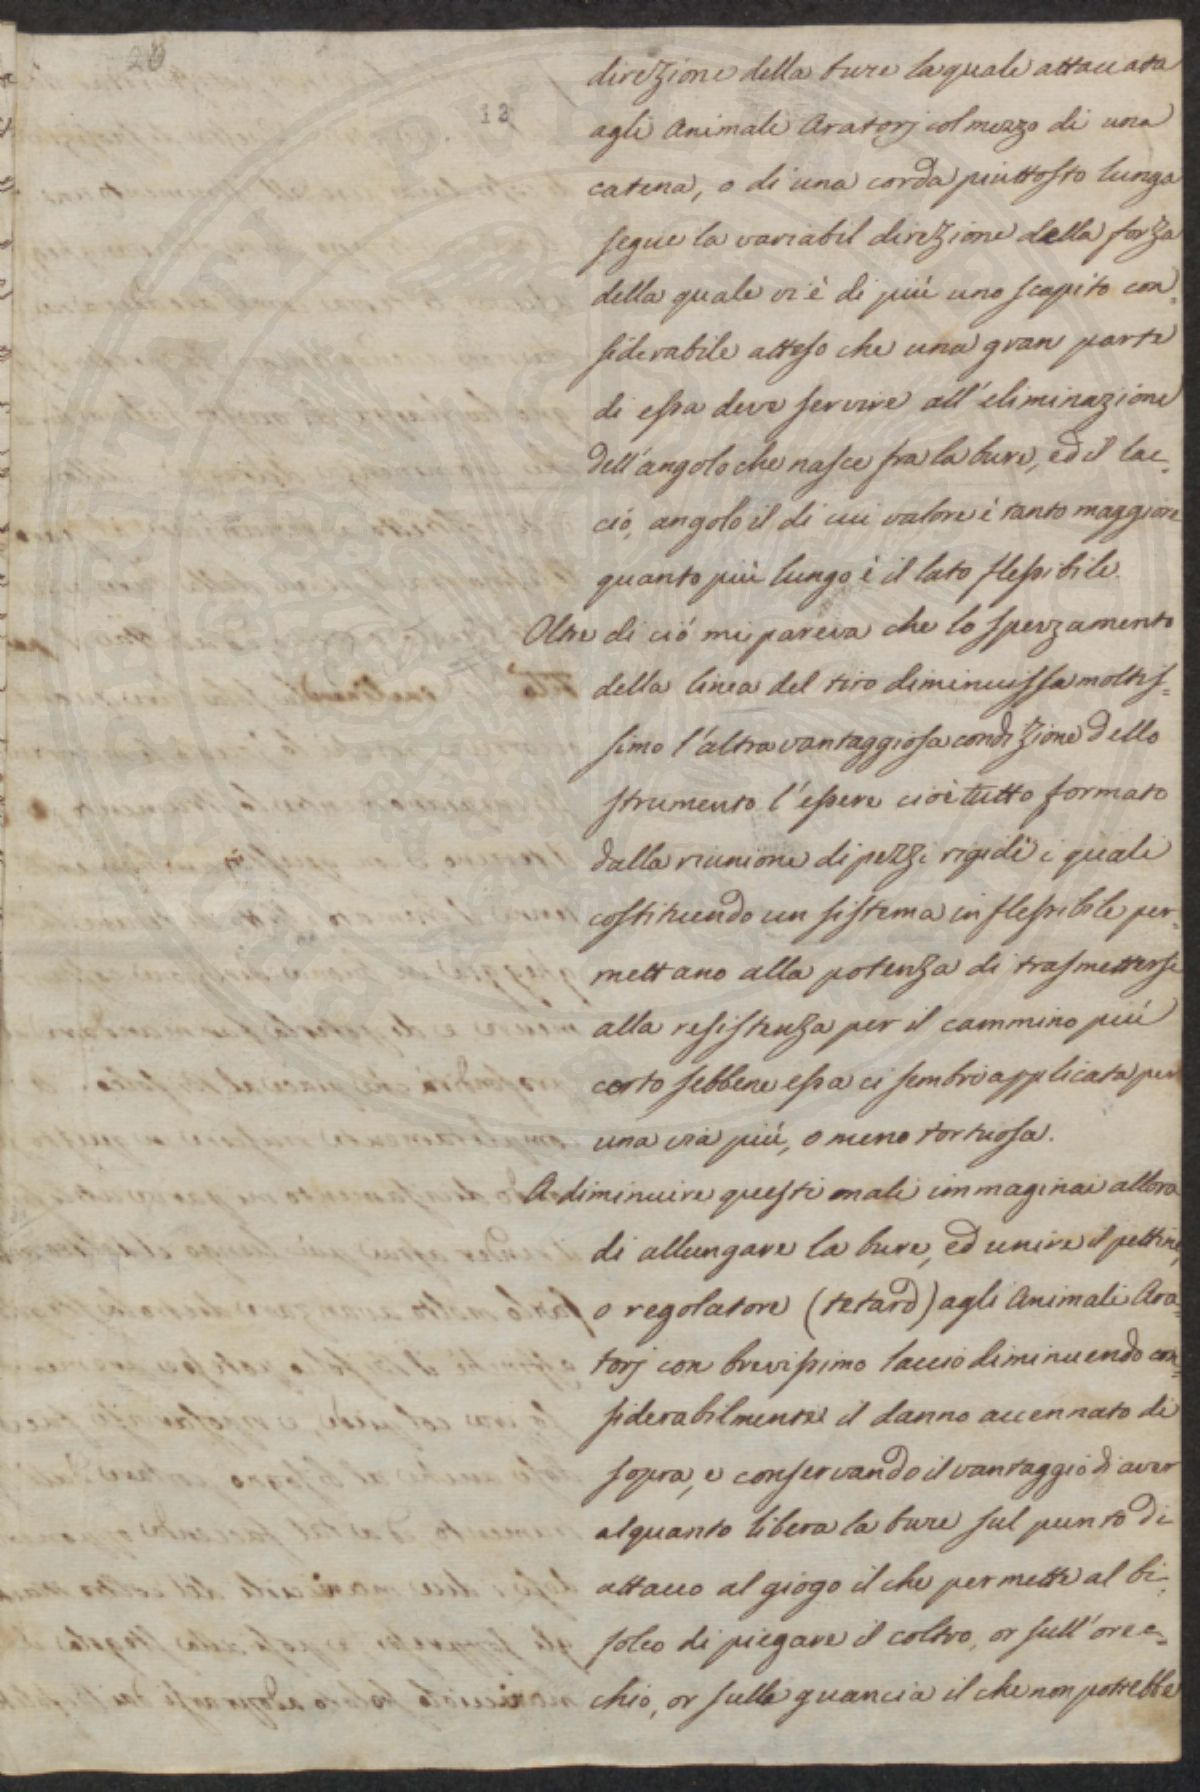 20
12
direzione della bure la quale attaccata
agli Animali Aratorj col mezzo di una
catena, o di una corda piuttosto lunga
segue la variabil direzione della forza
della quale vi è di più uno scapito con=
siderabile atteso che una gran parte
di essa deve servire all'eliminazione
dell'angolo che nasce fra la bure, ed il lac=
ciò, angolo il di cui valore è tanto maggiore
quanto più lungo è il lato flessibile.
Oltre di ciò mi pareva che lo spezzamento
della linea del tiro diminuissa moltis=
simo l'altra vantaggiosa condizione dello
strumento l'essere cioè tutto formato
dalla riunione di pezzi rigidi i quali
costituendo un sistema inflessibile per=
mettano alla potenza di trasmettersi
alla resistenza per il cammino più
corto sebbene essa ci sembri applicata per
una via più, o meno tortuosa.
A diminuire questi mali immaginai allora
di allungare la bure, ed unire il pettine,
o regolatore (tetard) agli Animali Ara=
torj con brevissimo laccio diminuendo con=
siderabilmente il danno accennato di
sopra, e conservando il vantaggio di aver
alquanto libera la bure sul punto di
attacco al giogo il che permette al bi=
folco di piegare il coltro, or sull'orec=
chio, or sulla guancia il che non potrebbe